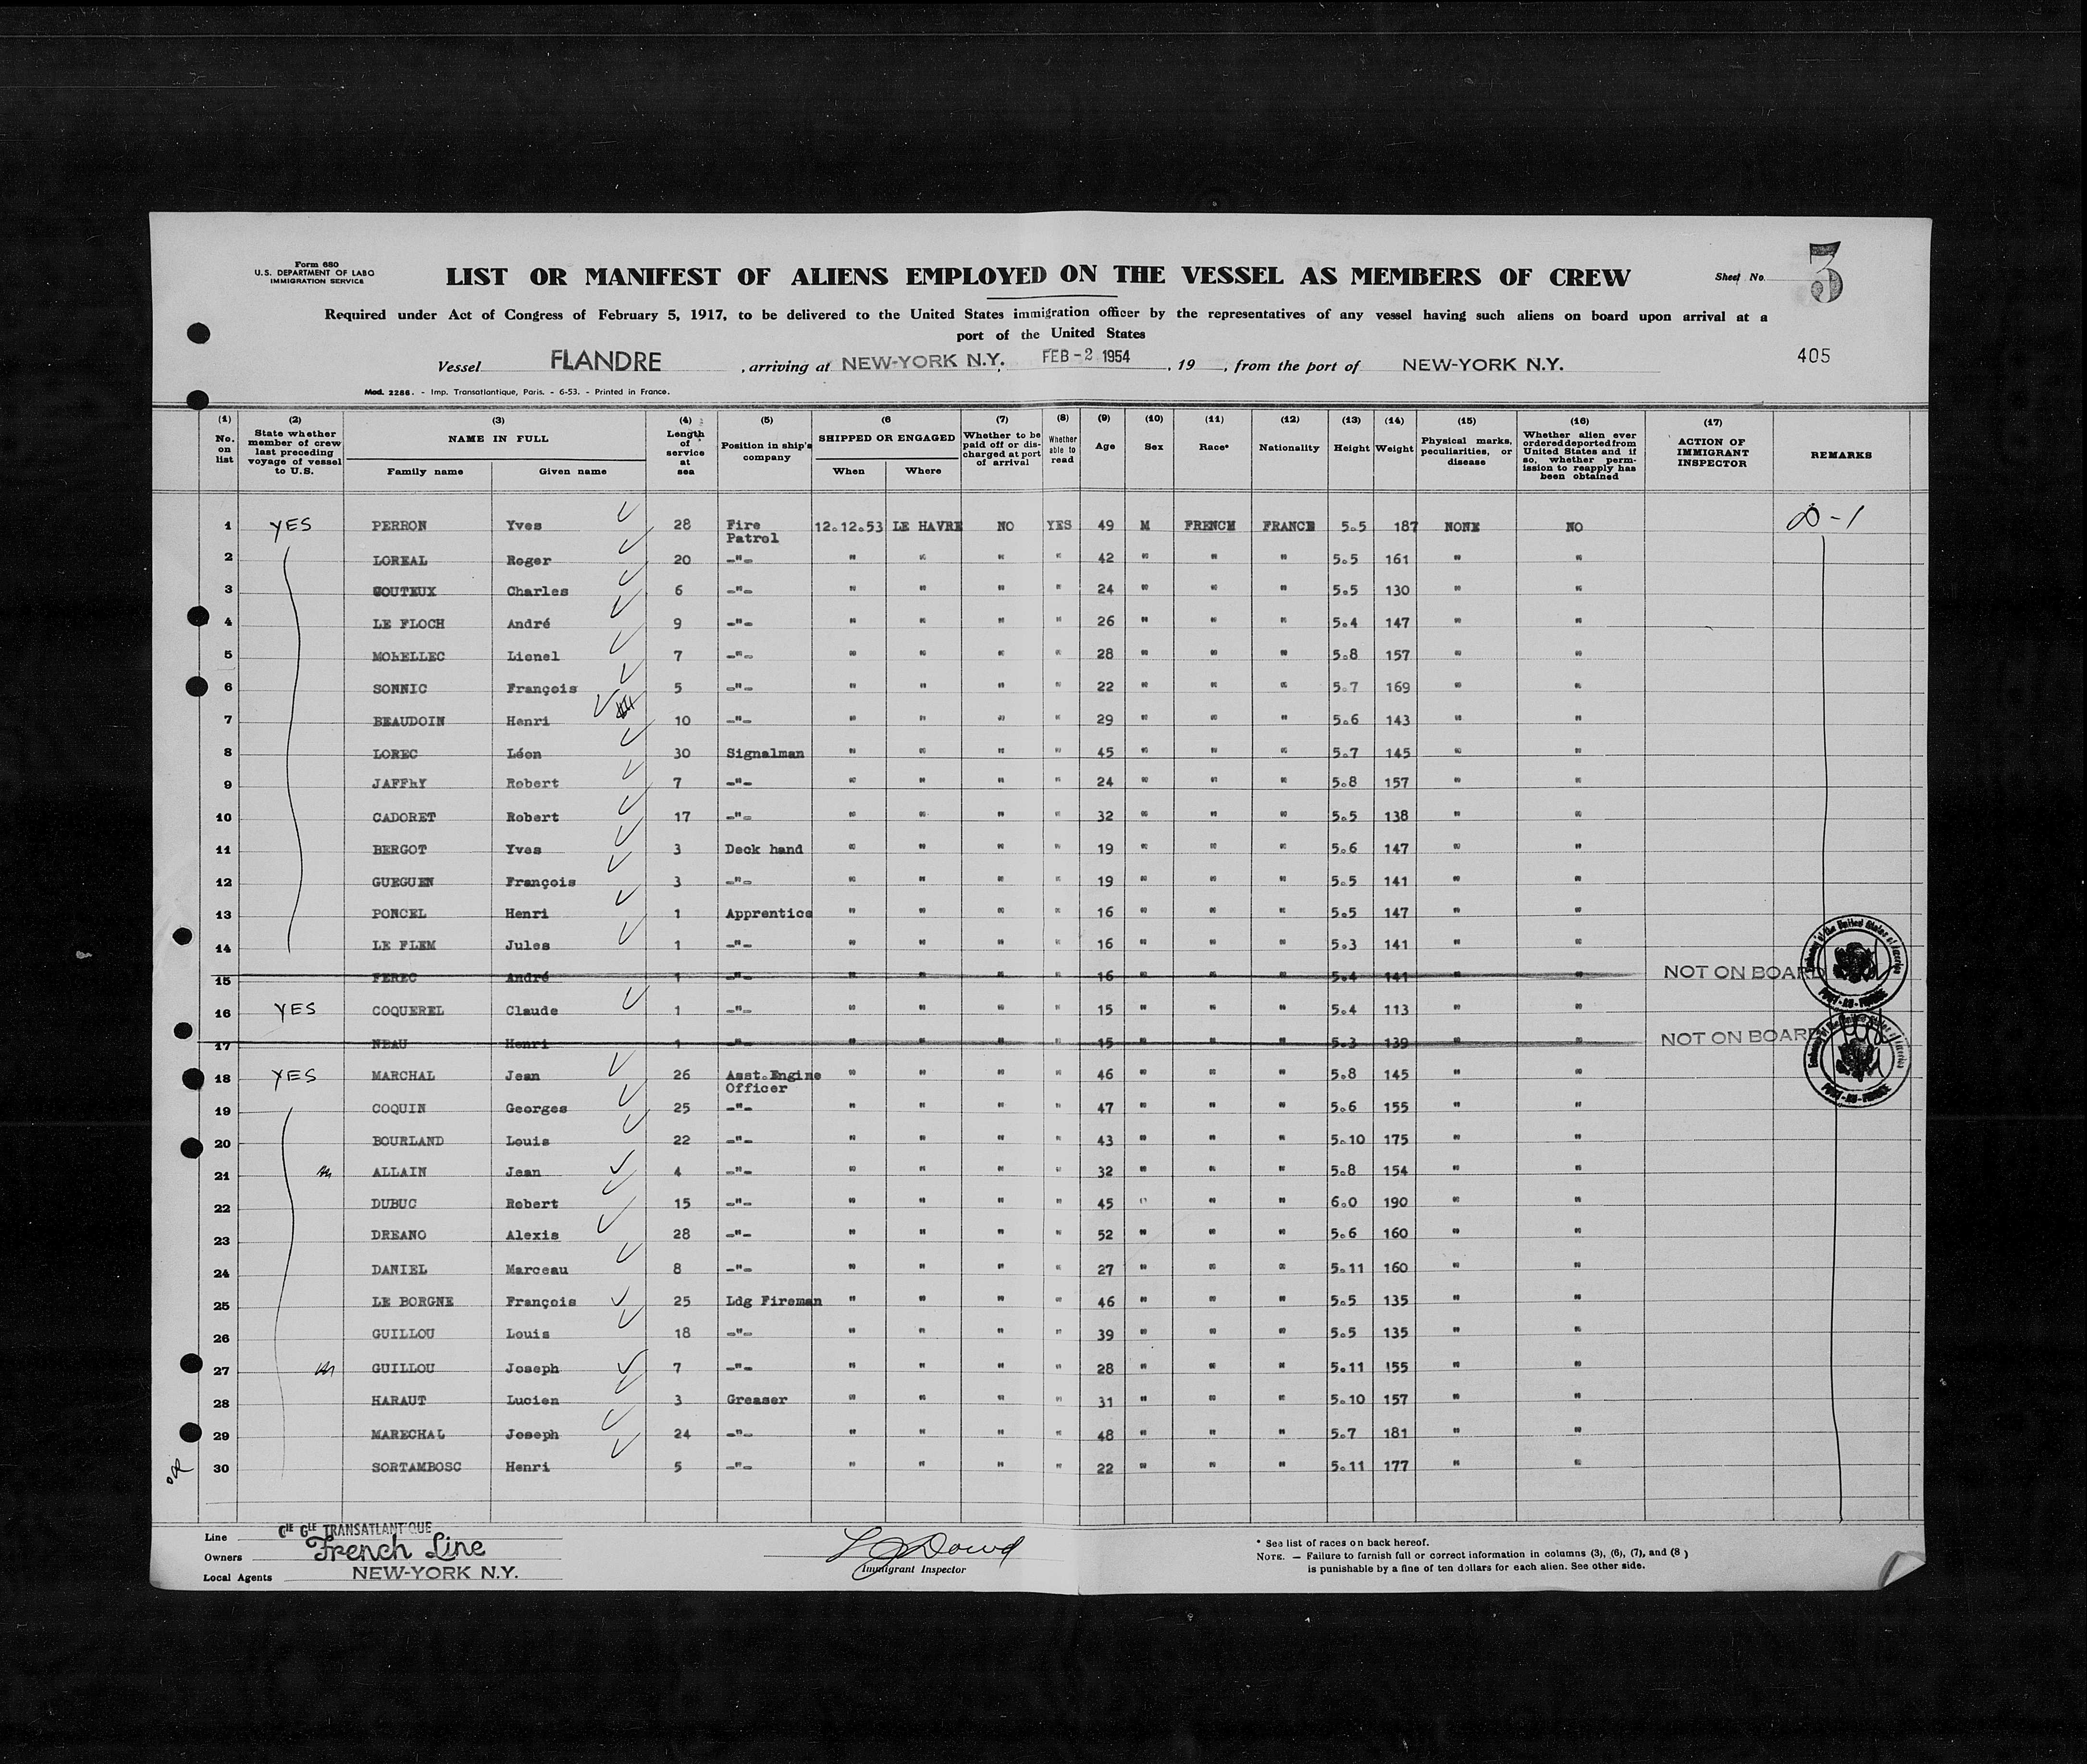 Form 680
U.S. DEPARTMENT OF LABO
IMMIGRATION SERVICE
LIST OR MANIFEST OF ALIENS EMPLOYED ON THE VESSEL AS MEMBERS OF CREW
Sheet No. 3
Required under Act of Congress of February 5, 1917, to be delivered to the United States immigration officer by the representatives of any vessel having such aliens on board upon arrival at a
port of the United States
Vessel FLANDRE , arriving at NEW-YORK N.Y. FEB-2 1954 , 19 , from the port of NEW-YORK N.Y. 405
Mod. 2288. - Imp. Transatlantique, Paris. - 6-53. - Printed in France.
(1) No. on list (2) State whether member of crew last preceding voyage of vessel to U.S. (3) NAME IN FULL Family name Given name (4) Length of service at sea (5) Position in ship's company (6 SHIPPED OR ENGAGED When Where (7) Whether to be paid off or discharged at port of arrival (8) Whether able to read (9) Age (10) Sex (11) Race* (12) Nationality (13) Height (14) Weight (15) Physical marks, peculiarities, or disease (16) Whether alien ever ordered deported from United States and if so, whether permission to reapply has been obtained (17) ACTION OF IMMIGRANT INSPECTOR REMARKS
1 YES PERRON Yves 28 Fire Patrol 12.12.53 LE HAVRE NO YES 49 M FRENCH FRANCE 5.5 187 NONE NO
2 LOREAL Roger 20 -"- " " " " 42 " " " 5.5 161 " "
3 GOUTEUX Charles 6 -"- " " " " 24 " " " 5.5 130 " "
4 LE FLOCH André 9 -"- " " " " 26 " " " 5.4 147 " "
5 MORELLEC Lionel 7 -"- " " " " 28 " " " 5.8 157 " "
6 SONNIC François 5 -"- " " " " 22 " " " 5.7 169 " "
7 BEAUDOIN Henri 10 -"- " " " " 29 " " " 5.6 143 " "
8 LOREC Léon 30 Signalman " " " " 45 " " " 5.7 145 " "
9 JAFFRY Robert 7 -"- " " " " 24 " " " 5.8 157 " "
10 CADORET Robert 17 -"- " " " " 32 " " " 5.5 138 " "
11 BERGOT Yves 3 Deck hand " " " " 19 " " " 5.6 147 " "
12 GUEGUEN François 3 -"- " " " " 19 " " " 5.5 141 " "
13 PONCEL Henri 1 Apprentice " " " " 16 " " " 5.5 147 " "
14 LE FLEM Jules 1 -"- " " " " 16 " " " 5.3 141 " "
15 FEREC André 1 -"- " " " " 16 " " " 5.4 141 " " NOT ON BOARD
16 YES COQUEREL Claude 1 -"- " " " " 15 " " " 5.4 113 " "
17 NEAU Henri 1 -"- " " " " 15 " " " 5.3 139 " " NOT ON BOARD
18 YES MARCHAL Jean 26 Asst.Engine Officer " " " " 46 " " " 5.8 145 " "
19 COQUIN Georges 25 -"- " " " " 47 " " " 5.6 155 " "
20 BOURLAND Louis 22 -"- " " " " 43 " " " 5.10 175 " "
21 ALLAIN Jean 4 -"- " " " " 32 " " " 5.8 154 " "
22 DUBUC Robert 15 -"- " " " " 45 " " " 6.0 190 " "
23 DREANO Alexis 28 -"- " " " " 52 " " " 5.6 160 " "
24 DANIEL Marceau 8 -"- " " " " 27 " " " 5.11 160 " "
25 LE BORGNE François 25 Ldg Fireman " " " " 46 " " " 5.5 135 " "
26 GUILLOU Louis 18 -"- " " " " 39 " " " 5.5 135 " "
27 GUILLOU Joseph 7 -"- " " " " 28 " " " 5.11 155 " "
28 HARAUT Lucien 3 Greaser " " " " 31 " " " 5.10 157 " "
29 MARECHAL Joseph 24 -"- " " " " 48 " " " 5.7 181 " "
30 SORTAMBOSC Henri 5 -"- " " " " 22 " " " 5.11 177 " "
Embassy of the United States of America
PORT-AU-PRINCE
Embassy of the United States of America
PORT-AU-PRINCE
Line CIE GLE TRANSATLANTIQUE
Owners French Line
Local Agents NEW-YORK N.Y.
Immigrant Inspector
* See list of races on back hereof.
NOTE. — Failure to furnish full or correct information in columns (3), (6), (7), and (8)
is punishable by a fine of ten dollars for each alien. See other side.